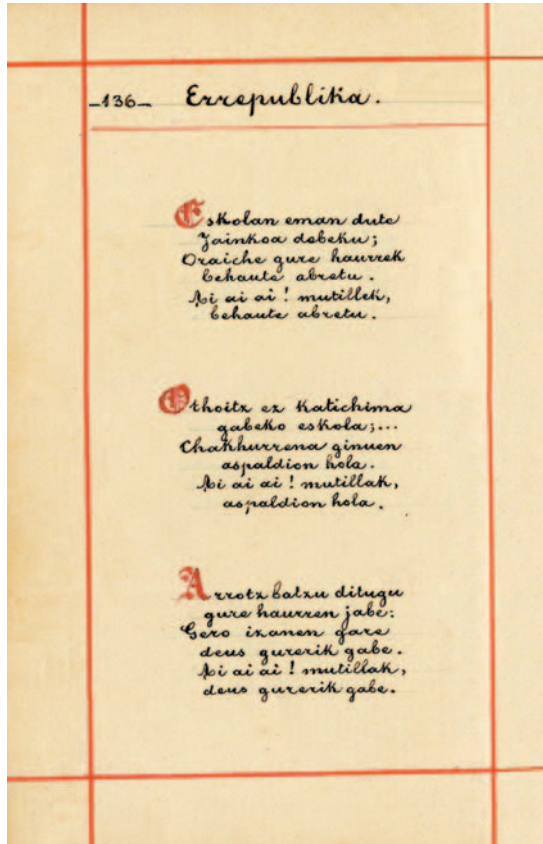 -136- Errepublika.
Eskolan eman dute
Jainkoa debeku;
Oraiche gure haurrek
behaute abretu.
Ai ai ai! mutillek,
behaute abretu.
Othoitz ez katichima
gabeko eskola;...
Chakhurrena ginuen
aspaldion hola.
Ai ai ai! mutillak,
aspaldion hola.
Arrotz batzu ditugu
gure haurren jabe:
Gero izanen gare
deus gurerik gabe.
Ai ai ai! mutillak,
deus gurerik gabe.